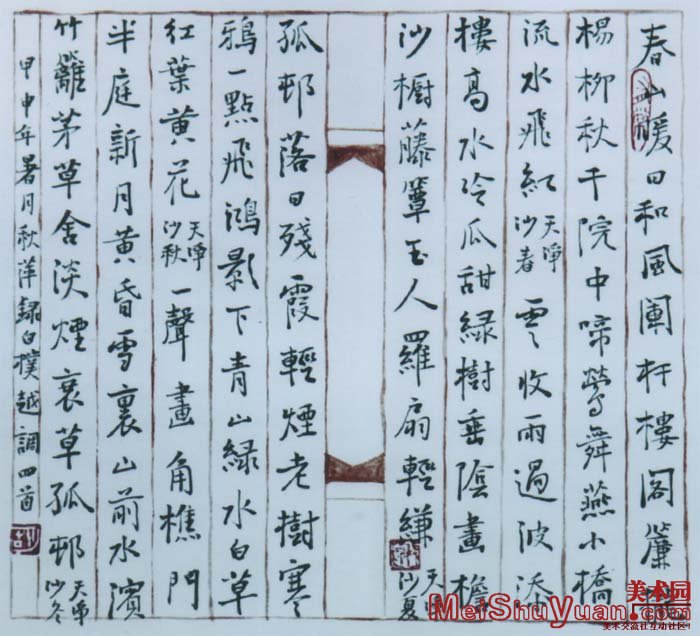 春山暖日和風闌杆樓閣簾
楊柳秋千院中啼鶯舞燕小橋
流水飛紅天淨沙春雲收雨過波添
樓高水冷瓜甜綠樹垂陰畫檐
沙櫥藤簟玉人羅扇輕縑天淨沙夏
孤邨落日殘霞輕煙老樹寒
鴉一點飛鴻影下青山綠水白草
紅葉黃花天淨沙秋一聲畫角樵門
半庭新月黃昏雪裏山前水濱
竹籬茅草舍淡煙衰草孤邨天淨沙冬
甲申年暑月秋萍録白樸越調四首
美术园
MeiShuYuan.com
美术交流社互动社区